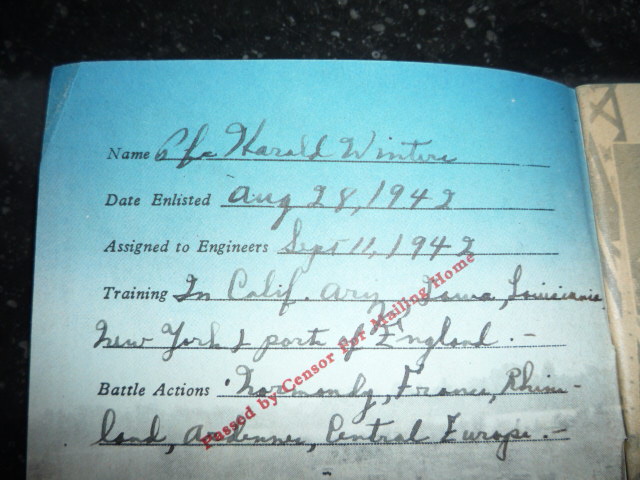 Name Pfc Harold Winters
Date Enlisted Aug 28, 1942
Assigned to Engineers Sept 11, 1942
Training In Calif. Ariz, Iowa, Louisiana
New York & port of England. -
Battle Actions Normandy, France, Rhine-
land, Ardennes, Central Europe. -
Passed by Censor For Mailing Home